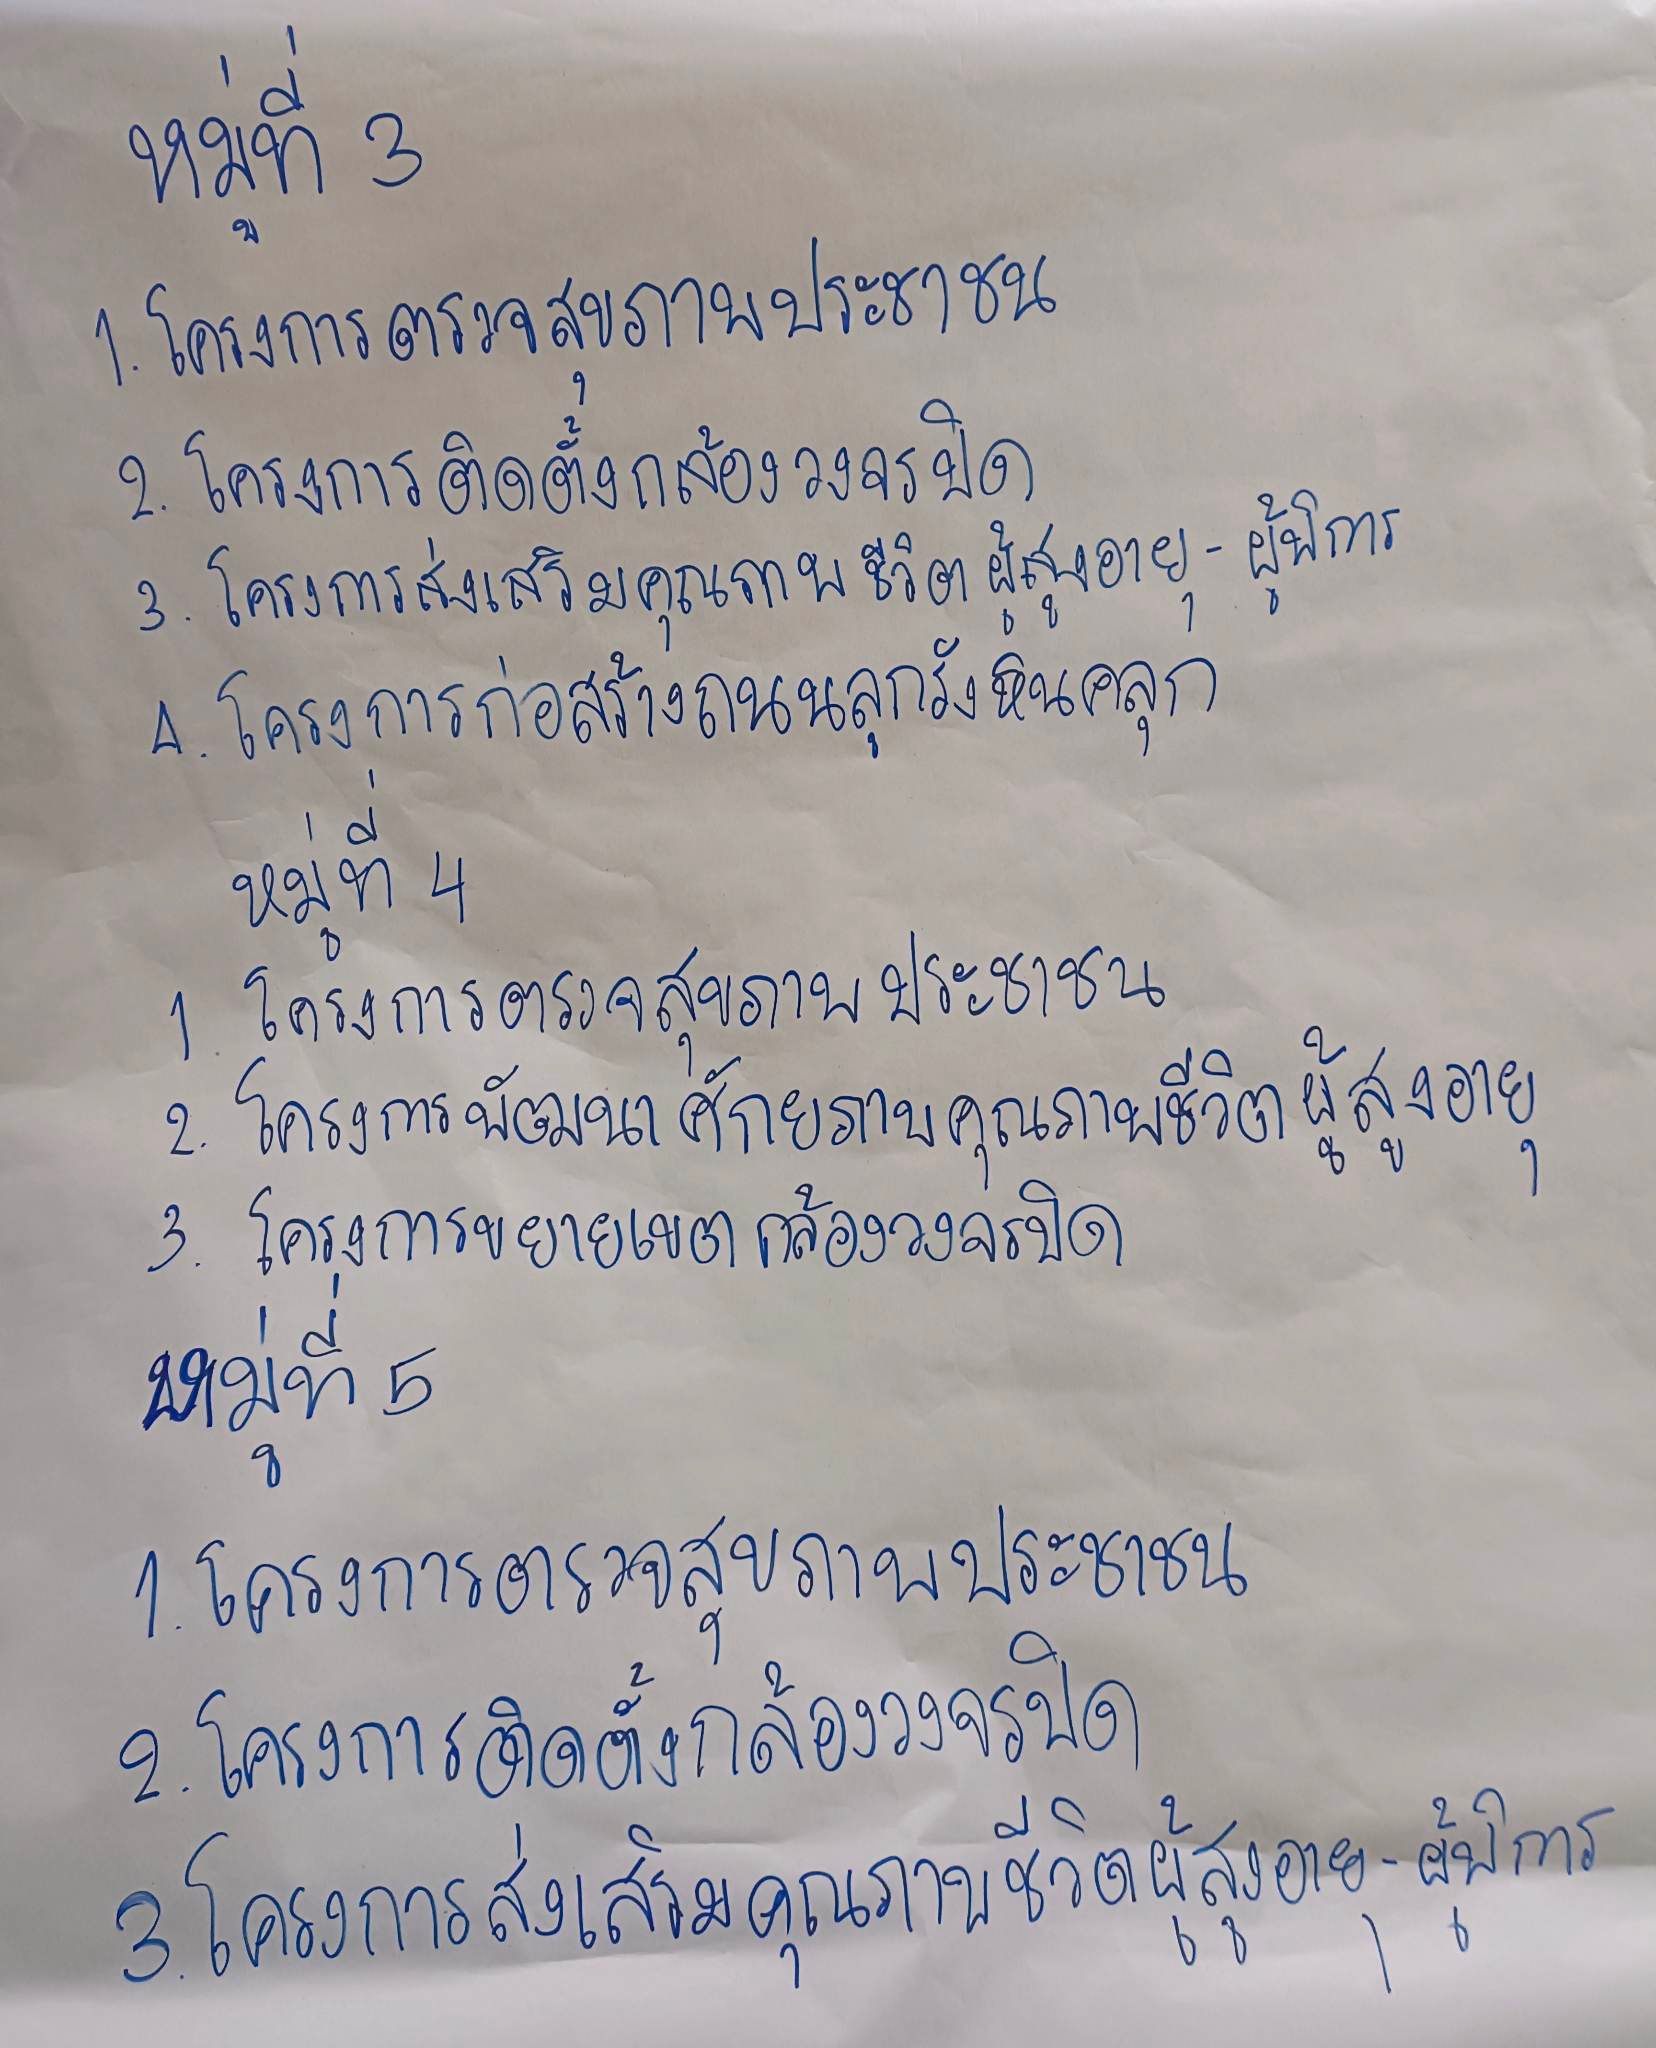 หมู่ที่ 3
1. โครงการตรวจสุขภาพประชาชน
2. โครงการติดตั้งกล้องวงจรปิด
3. โครงการส่งเสริมคุณภาพชีวิตผู้สูงอายุ - ผู้พิการ
4. โครงการก่อสร้างถนนลุกรังหินคลุก
หมู่ที่ 4
1. โครงการตรวจสุขภาพประชาชน
2. โครงการพัฒนาศักยภาพคุณภาพชีวิตผู้สูงอายุ
3. โครงการขยายเขตกล้องวงจรปิด
หมู่ที่ 5
1. โครงการตรวจสุขภาพประชาชน
2. โครงการติดตั้งกล้องวงจรปิด
3. โครงการส่งเสริมคุณภาพชีวิตผู้สูงอายุ - ผู้พิการ